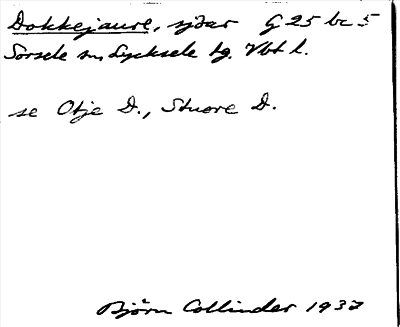 Dokkejaure, sjöar G 25 bc 5
Sorsele sn, Lycksele tg. Vbt l.
se Otje D., Stuore D.
Björn Collinder 1937